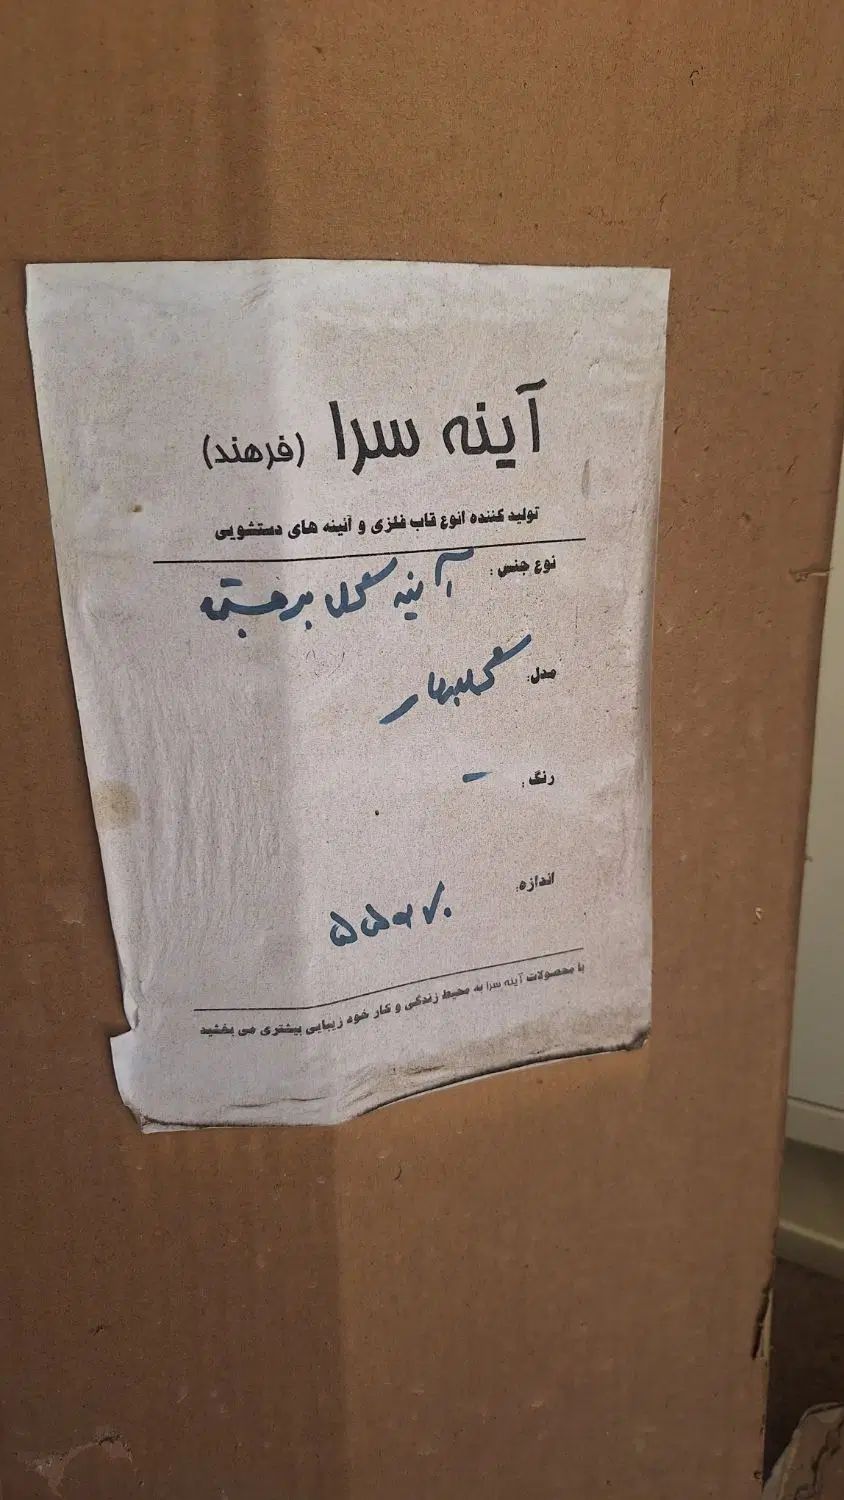 آینه سرا (فرهند)
تولید کننده انوع قاب فلزی و آئینه های دستشویی
نوع جنس : آینه گل برجسته
مدل: گلبهار
رنگ : -
اندازه:
با محصولات آینه سرا به محیط زندگی و کار خود زیبایی بیشتری می بخشید